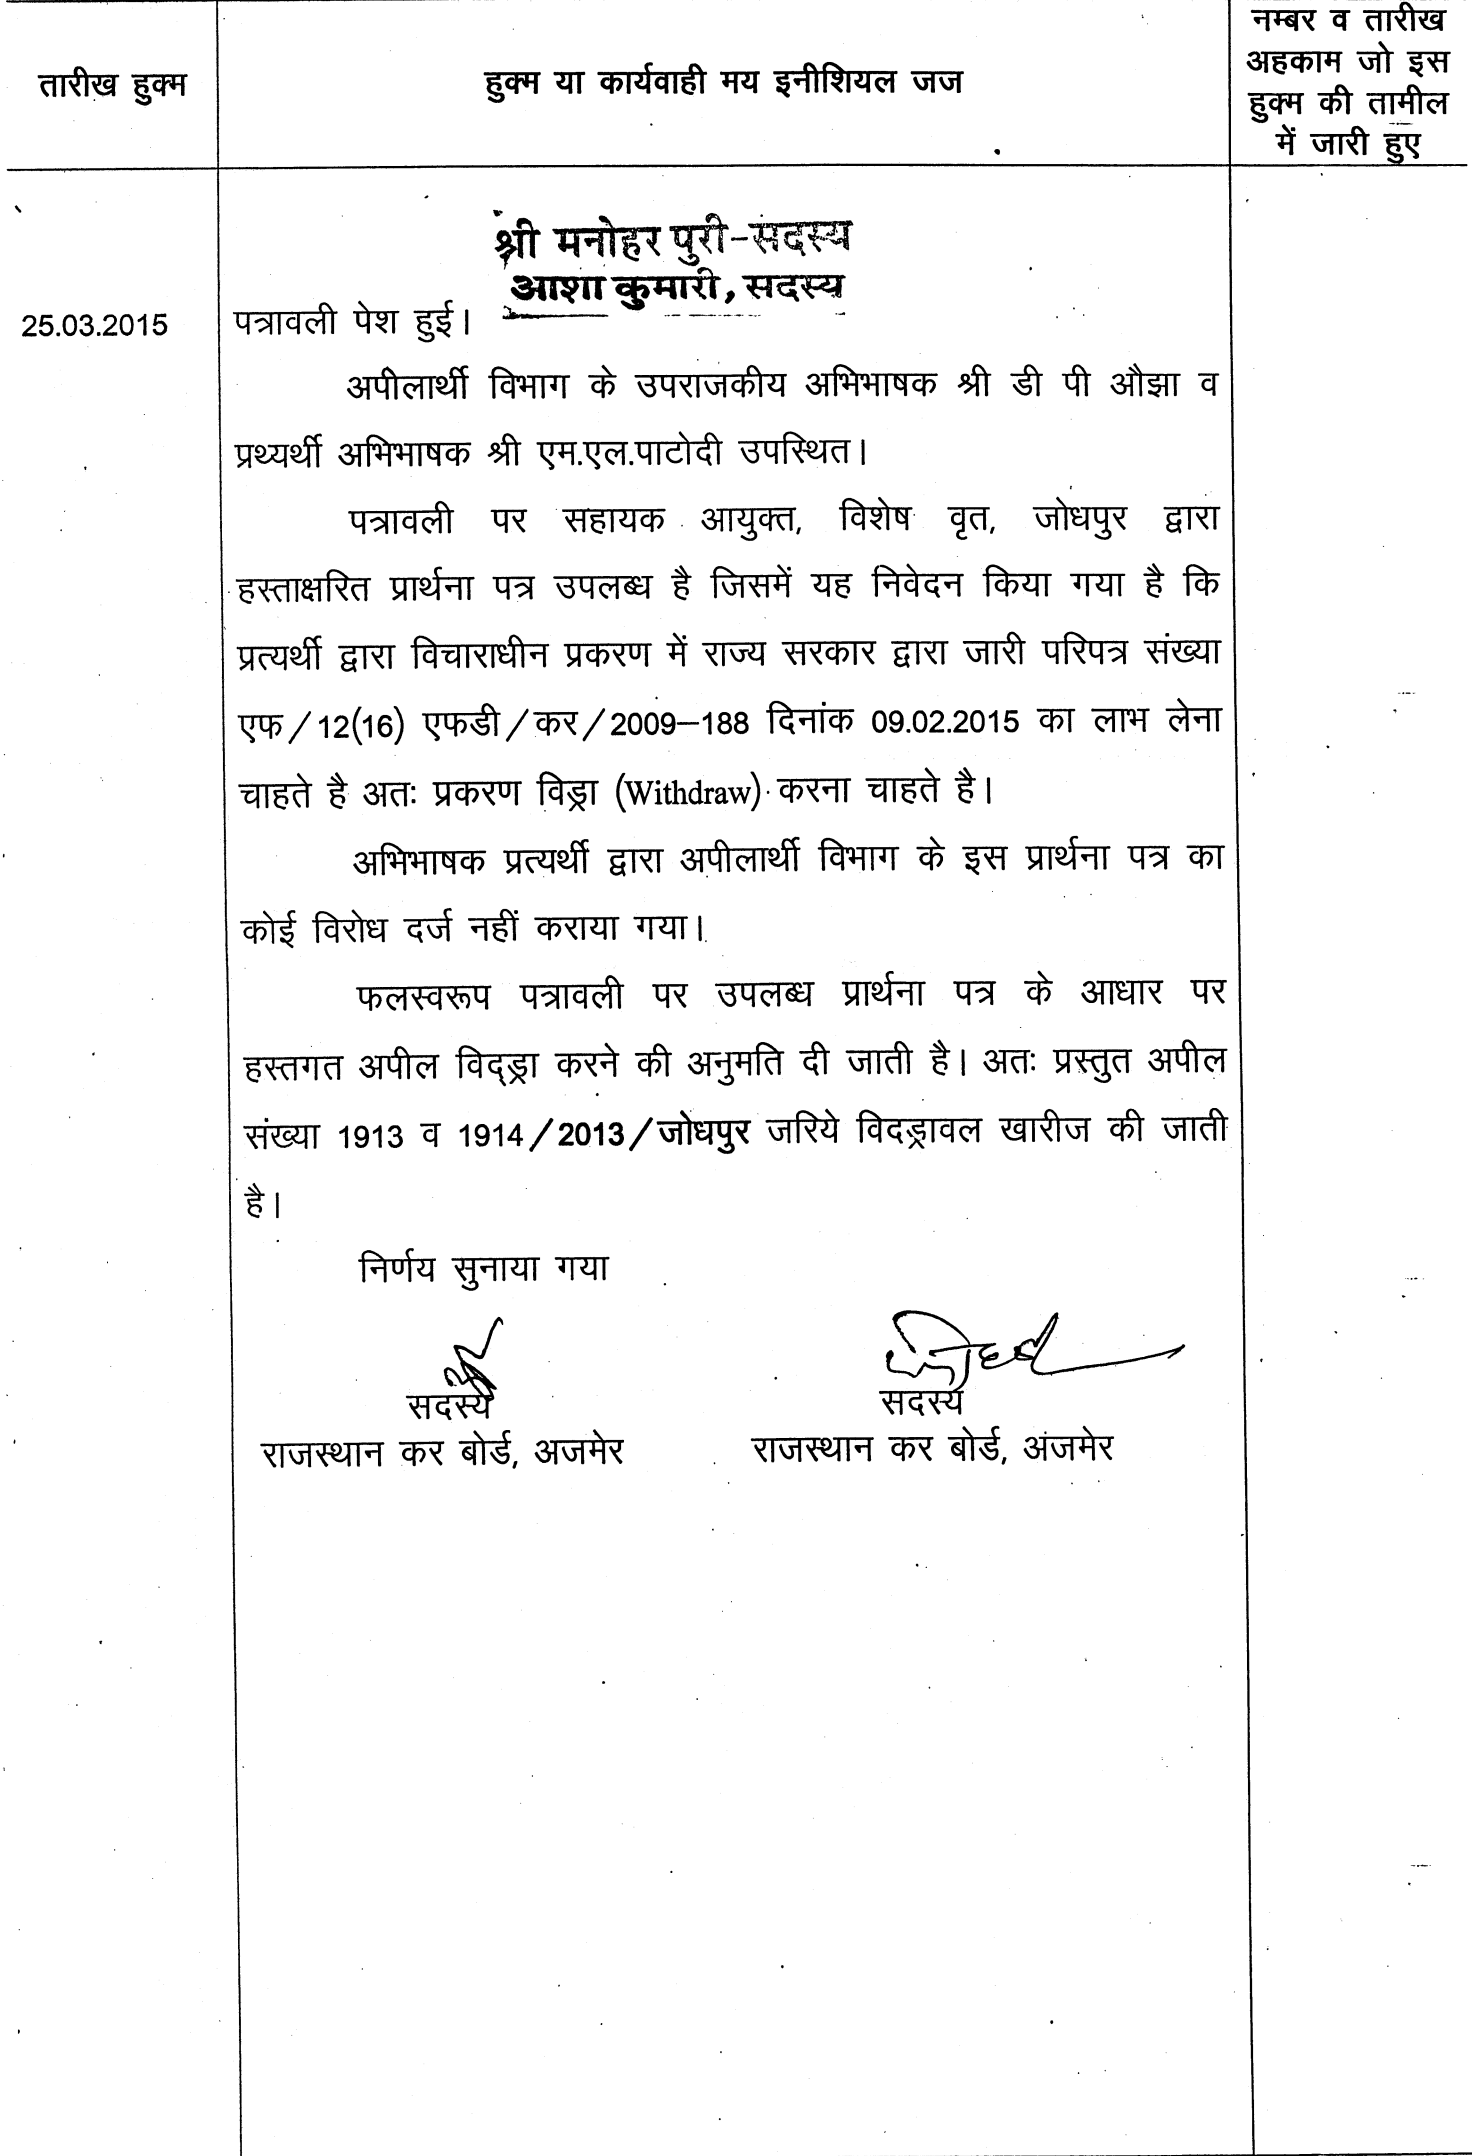 तारीख हुक्म
हुक्म या कार्यवाही मय इनीशियल जज
नम्बर व तारीख
अहकाम जो इस
हुक्म की तामील
में जारी हुए
श्री मनोहर पुरी-सदस्य
आशा कुमारी, सदस्य
25.03.2015
पत्रावली पेश हुई।
अपीलार्थी विभाग के उपराजकीय अभिभाषक श्री डी पी औझा व
प्रथ्यर्थी अभिभाषक श्री एम.एल.पाटोदी उपस्थित।
पत्रावली पर सहायक आयुक्त, विशेष वृत, जोधपुर द्वारा
हस्ताक्षरित प्रार्थना पत्र उपलब्ध है जिसमें यह निवेदन किया गया है कि
प्रत्यर्थी द्वारा विचाराधीन प्रकरण में राज्य सरकार द्वारा जारी परिपत्र संख्या
एफ/12(16) एफडी/कर/2009–188 दिनांक 09.02.2015 का लाभ लेना
चाहते है अतः प्रकरण विड्रा (Withdraw) करना चाहते है।
अभिभाषक प्रत्यर्थी द्वारा अपीलार्थी विभाग के इस प्रार्थना पत्र का
कोई विरोध दर्ज नहीं कराया गया।
फलस्वरूप पत्रावली पर उपलब्ध प्रार्थना पत्र के आधार पर
हस्तगत अपील विद्ड्रा करने की अनुमति दी जाती है। अतः प्रस्तुत अपील
संख्या 1913 व 1914/2013/जोधपुर जरिये विदड्रावल खारीज की जाती
है।
निर्णय सुनाया गया
सदस्य
सदस्य
राजस्थान कर बोर्ड, अजमेर
राजस्थान कर बोर्ड, अजमेर